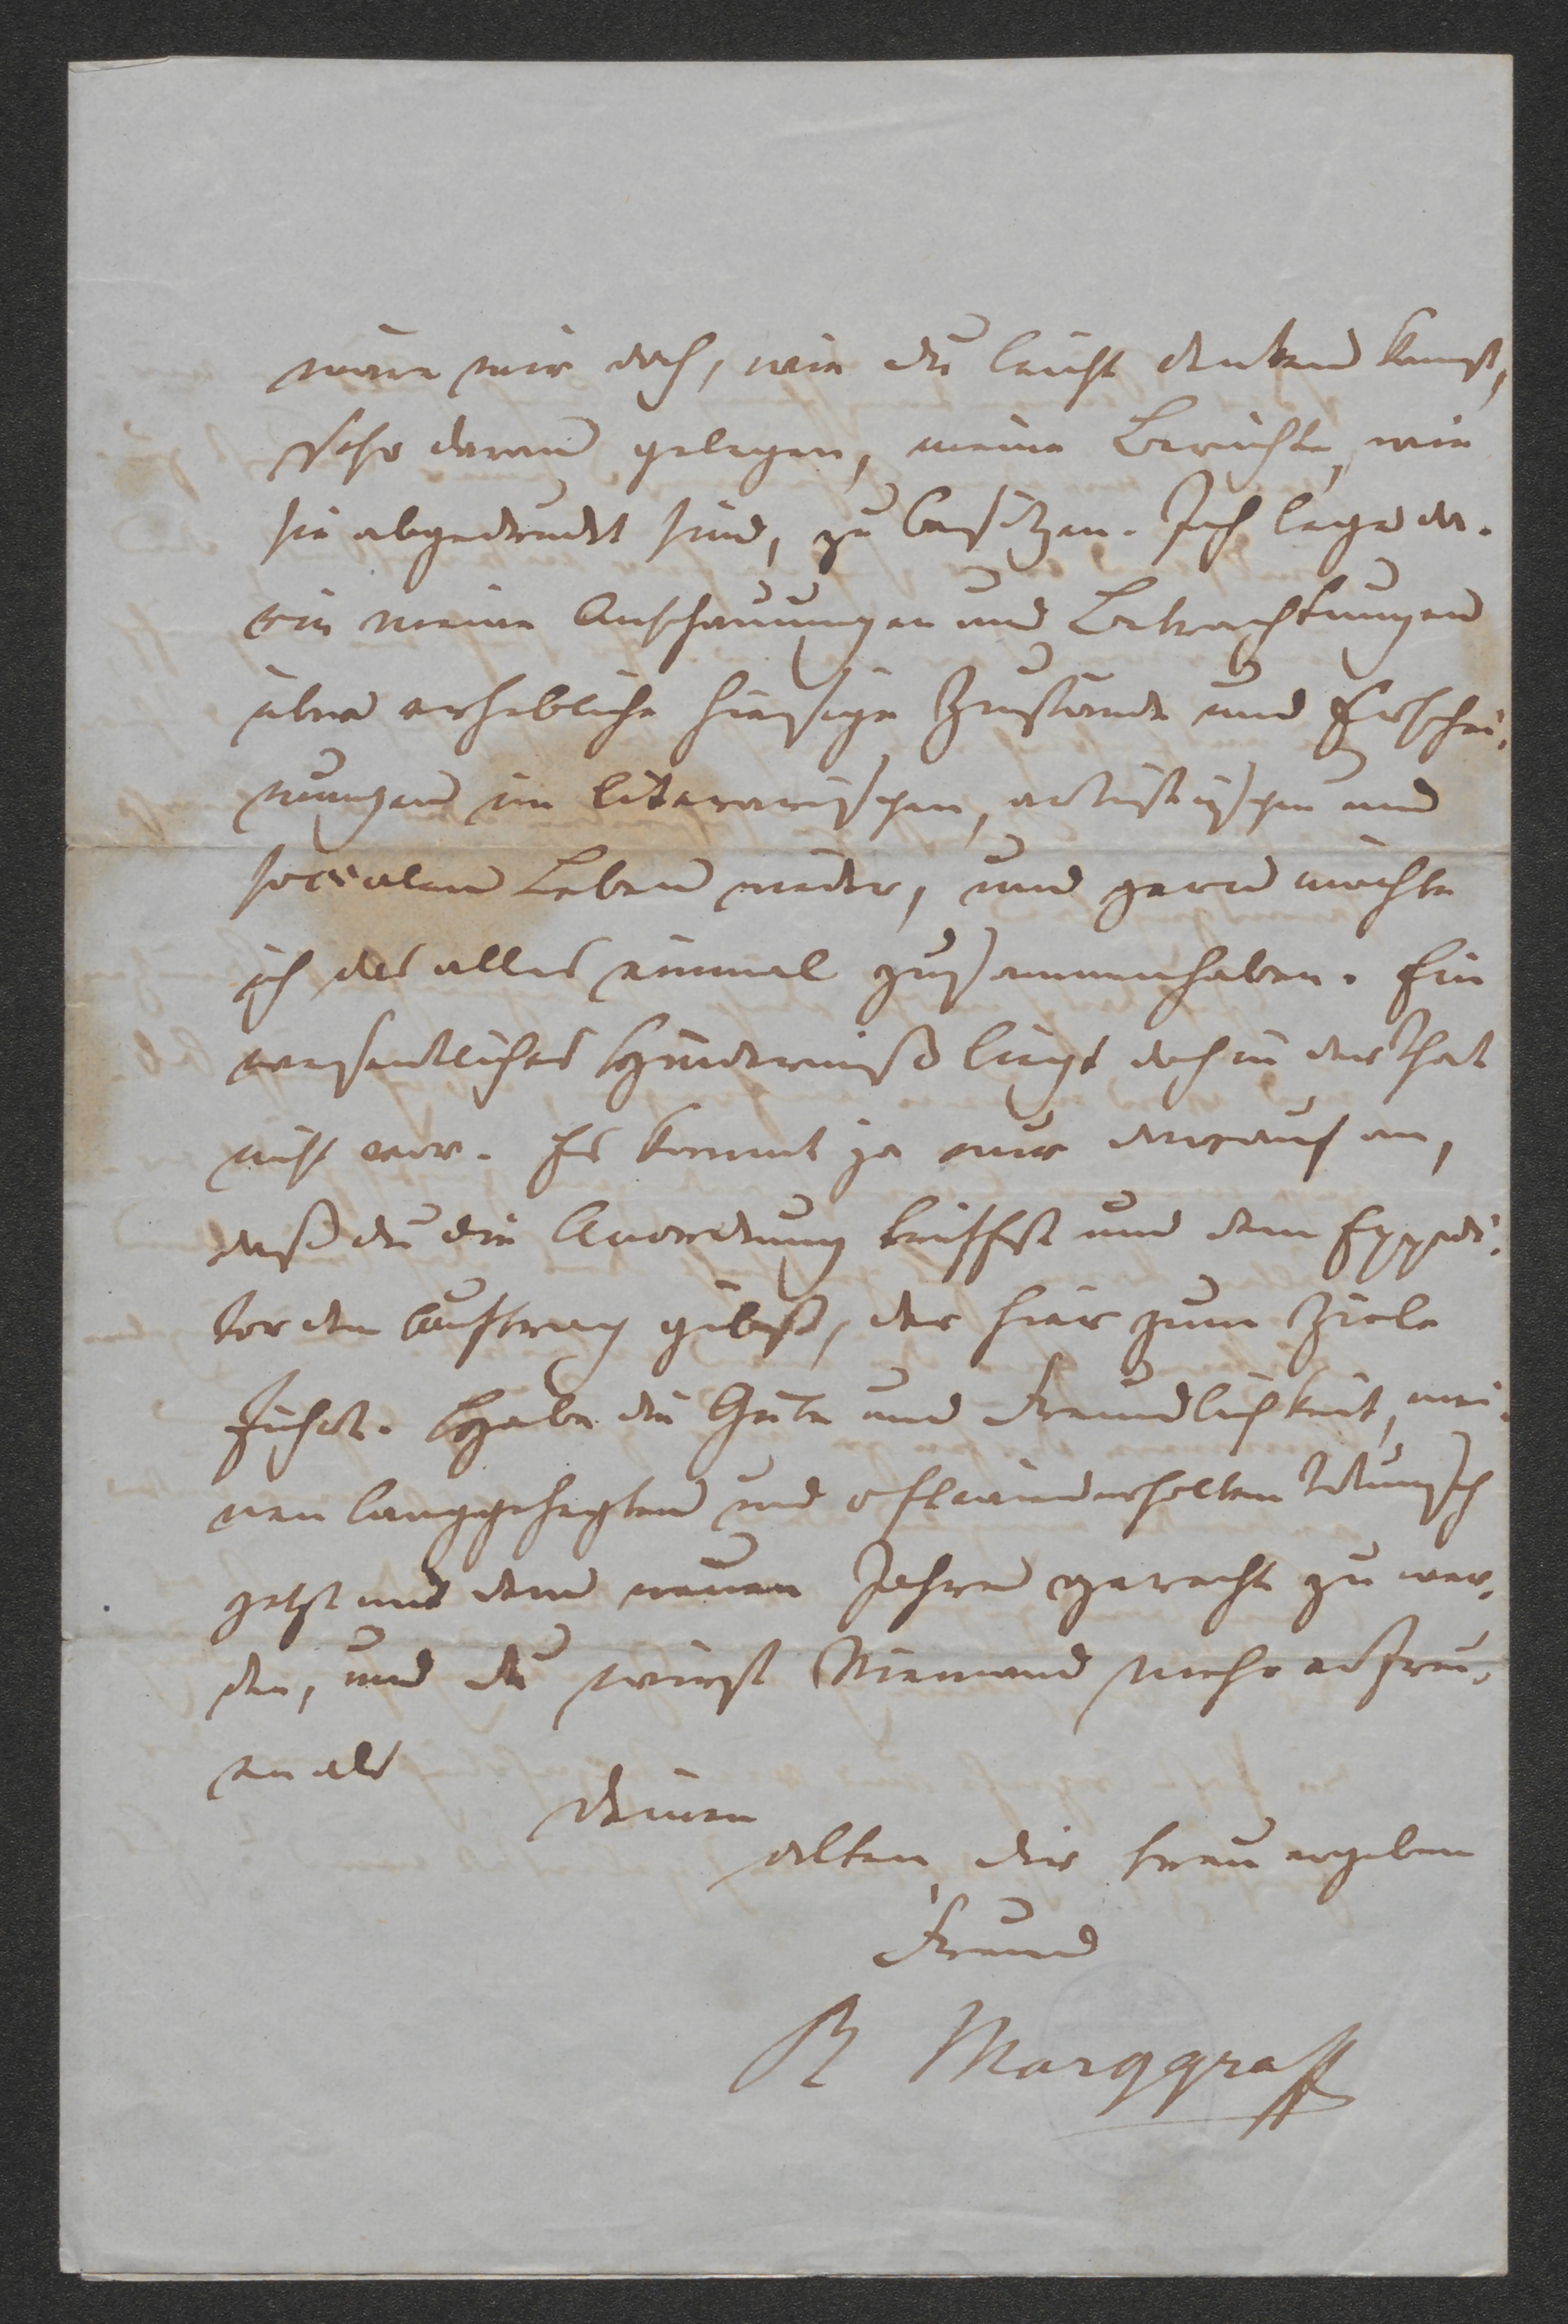 wäre mir doch, wie du leicht denken kannst,
sehr daran gelegen, meine Berichte, wie
sie abgedruckt sind, zu besitzen. Ich lege da-
rin meine Anschauungen und Betrachtungen
über erhebliche hiesige Zustände und Erschei-
nungen im literarischen, artistischen und
socialen Leben nieder, und gern möchte
ich das alles einmal zusammenhaben. Ein
wesentliches Hinderniß liegt doch in der That
nicht vor. Es kommt ja nur darauf an,
daß du die Anordnung triffst und dem Expedi-
tor den Auftrag gibst, der hier zum Ziele
führt. Habe die Güte und Freundlichkeit, mei-
nen langgehegten und oftwiederholten Wunsch
jetzt mit dem neuen Jahre gerecht zu wer-
den, und du wirst Niemand mehr erfreu-
en als
deinen
alten, dir treu ergeben
Freund
R Marggraff